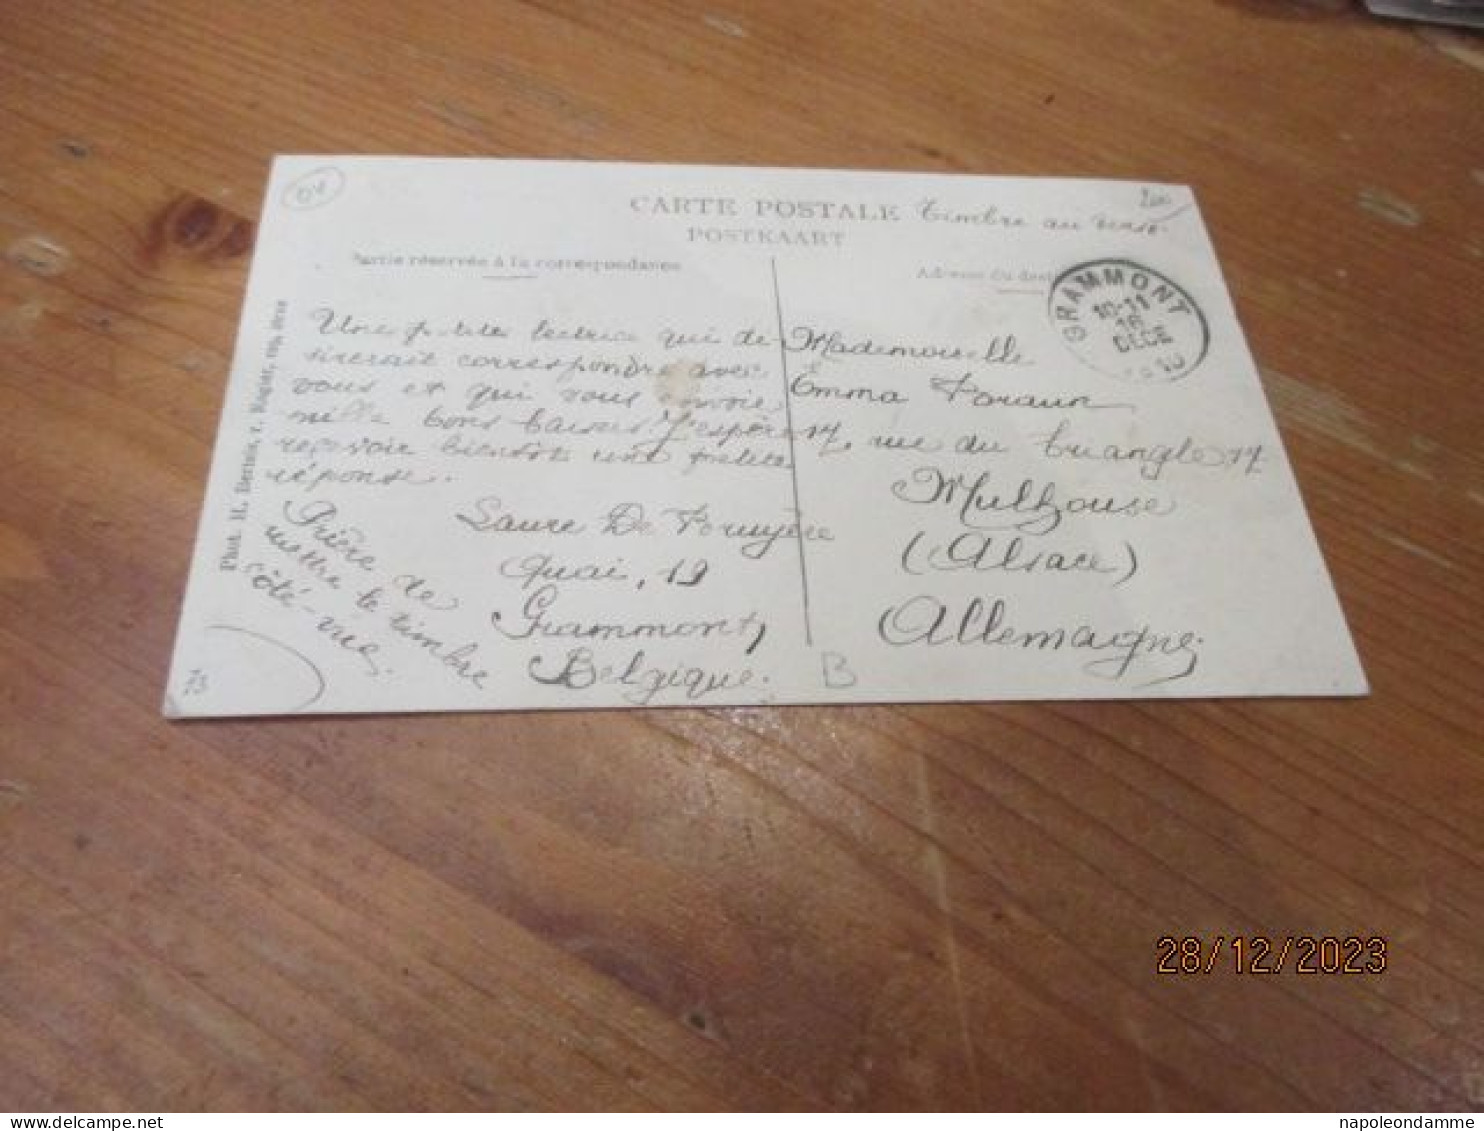 CARTE POSTALE Timbre au verso.
POSTKAART
Partie réservée à la correspondance
Adresse du desti
GRAMMONT
10-11
16
DECE
10
Une petite lectrice qui dé-
sirerait correspondre avec
vous et qui vous envoie
mille bons baisers. J'espère
recevoir bientôt une petite
réponse.
Laure De
Quai, 19
Grammont,
Belgique.
Prière de
mettre le timbre
côté-vue.
Mademoiselle
Emma
17, rue du triangle, 17
Mulhouse
(Alsace)
Allemagne.
Phot. H. Bertels, r. Rogier,
B
28/12/2023
napoleondamme